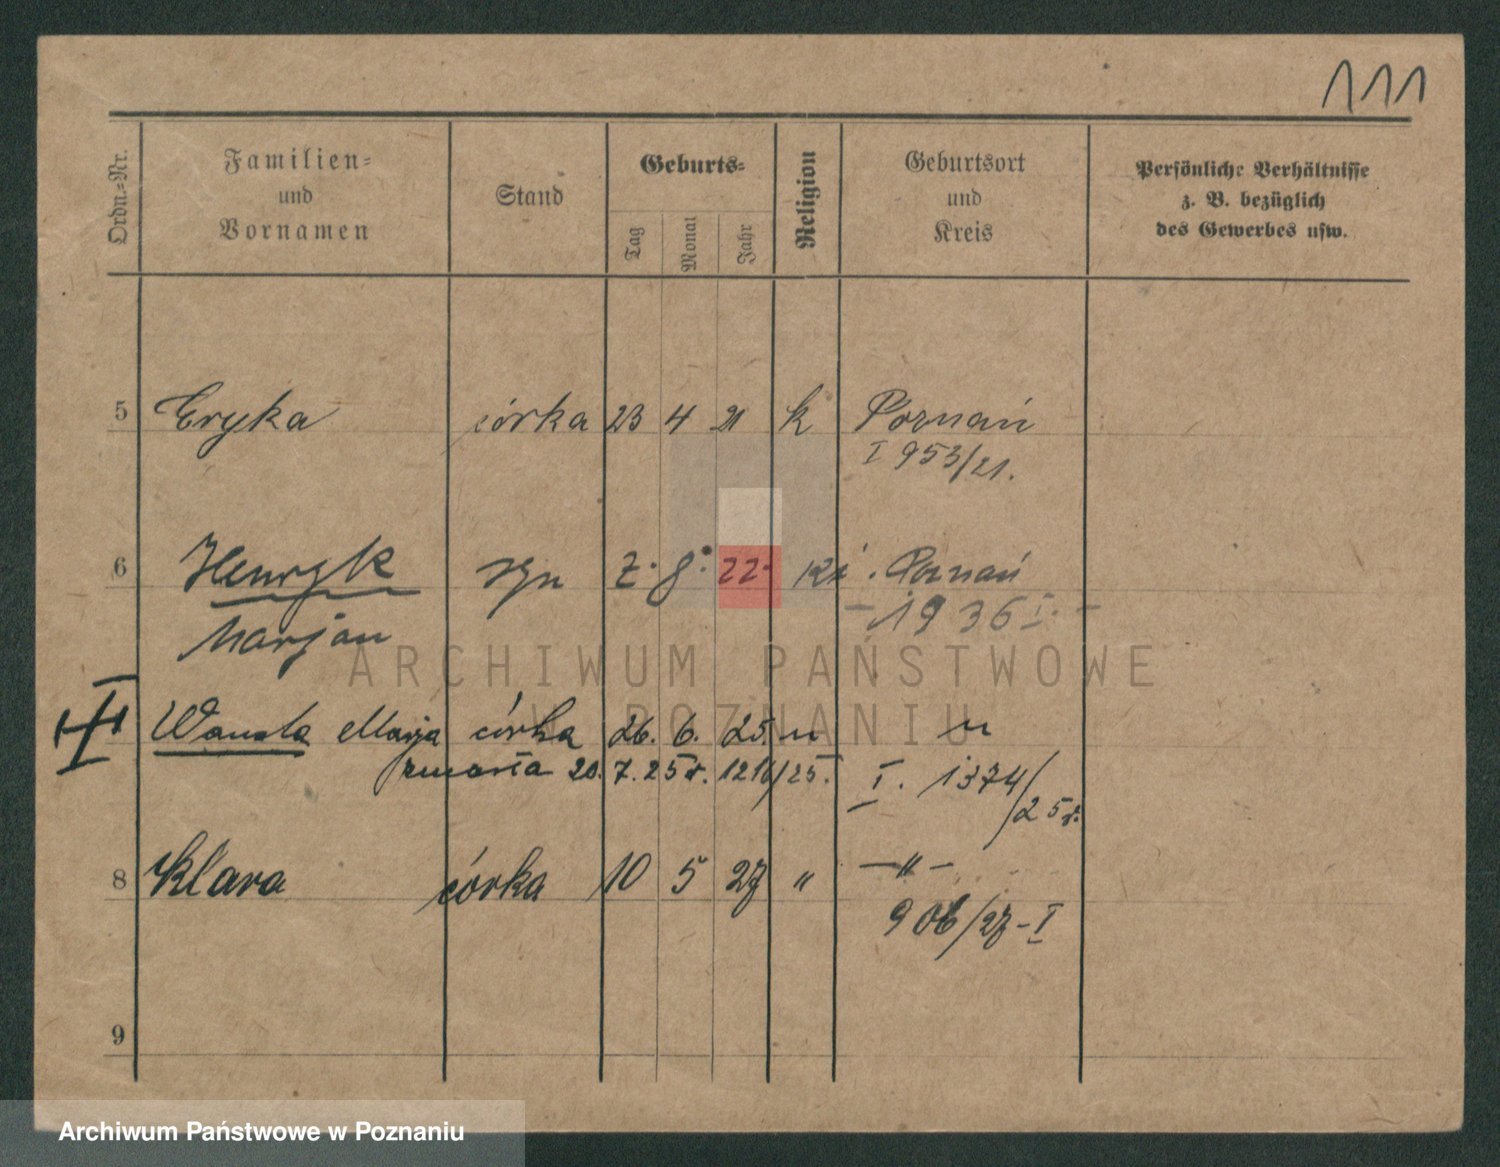 111
Ordn.=Nr.
Familien=
und
Vornamen
Stand
Geburts=
Tag
Monat
Jahr
Religion
Geburtsort
und
Kreis
Persönliche Verhältnisse
z. B. bezüglich
des Gewerbes usw.
5 Eryka córka 23 4 21 k Poznań
I 953/21.
6 Henryk syn 2. 8. 22. Poznań
Marjan 1936 I.
Wanda Marja córka 26. 6. 25. " "
zmarła 20. 7. 25 r. 1216/25. I. 1374/25 r.
8 Klara córka 10 5 27 " — " —
906/27 - I
9
ARCHIWUM PAŃSTWOWE
W POZNANIU
Archiwum Państwowe w Poznaniu